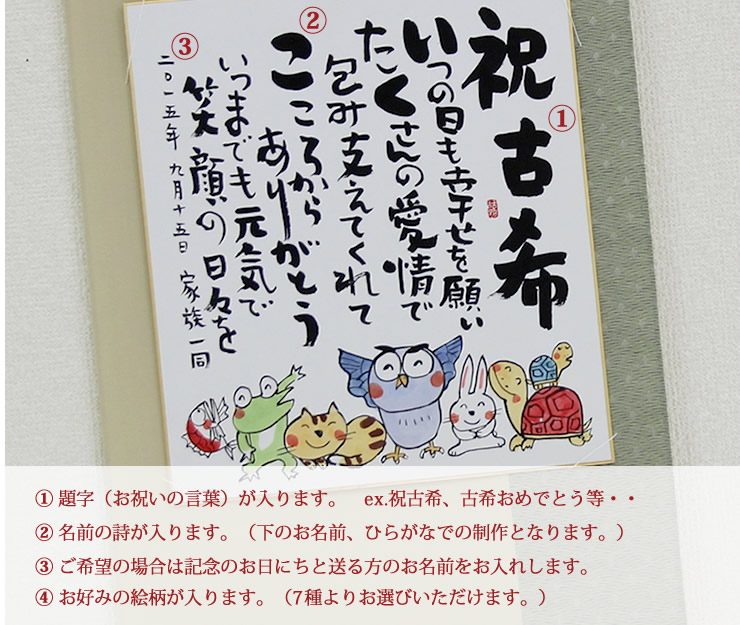 ①
祝古希
いつの日も幸せを願い
たくさんの愛情で
包み支えてくれて
②
こころから
ありがとう
いつまでも元気で
笑顔の日々を
③
二〇一五年 九月十五日 家族一同
① 題字（お祝いの言葉）が入ります。　ex.祝古希、古希おめでとう等・・
② 名前の詩が入ります。（下のお名前、ひらがなでの制作となります。）
③ ご希望の場合は記念のお日にちと送る方のお名前をお入れします。
④ お好みの絵柄が入ります。（7種よりお選びいただけます。）